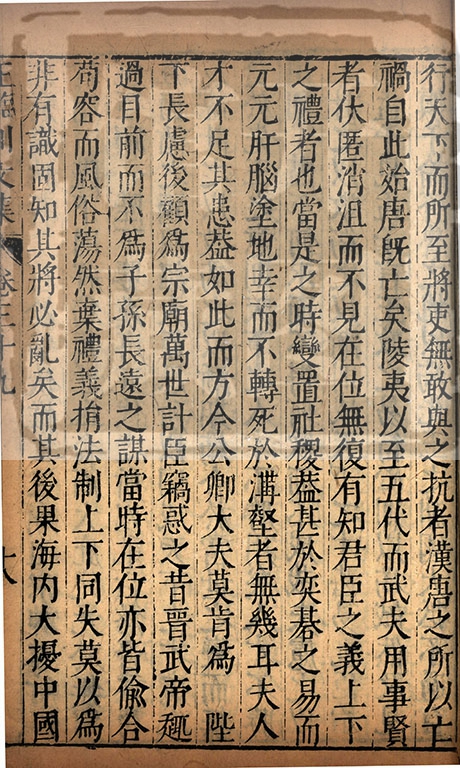 行天下而所至將吏無敢與之抗者漢唐之所以亡
禍自此始唐旣亡矣陵夷以至五代而武夫用事賢
者伏匿消沮而不見在位無復有知君臣之義上下
之禮者也當是之時變置社稷葢甚於奕碁之易而
元元肝腦塗地幸而不轉死於溝壑者無幾耳夫人
才不足其患葢如此而方今公卿大夫莫肯爲 陛
下長慮後顧爲宗廟萬世計臣竊惑之昔晉武帝趣
過目前而不爲子孫長遠之謀當時在位亦皆偷合
苟容而風俗蕩然棄禮義捐法制上下同失莫以爲
非有識固知其將必亂矣而其後果海内大擾中國
王臨川文集 卷三十九